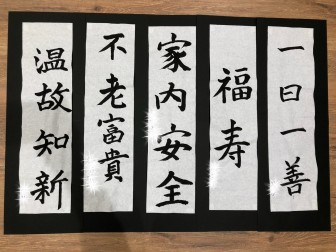 一日一善
福寿
家内安全
不老富貴
温故知新